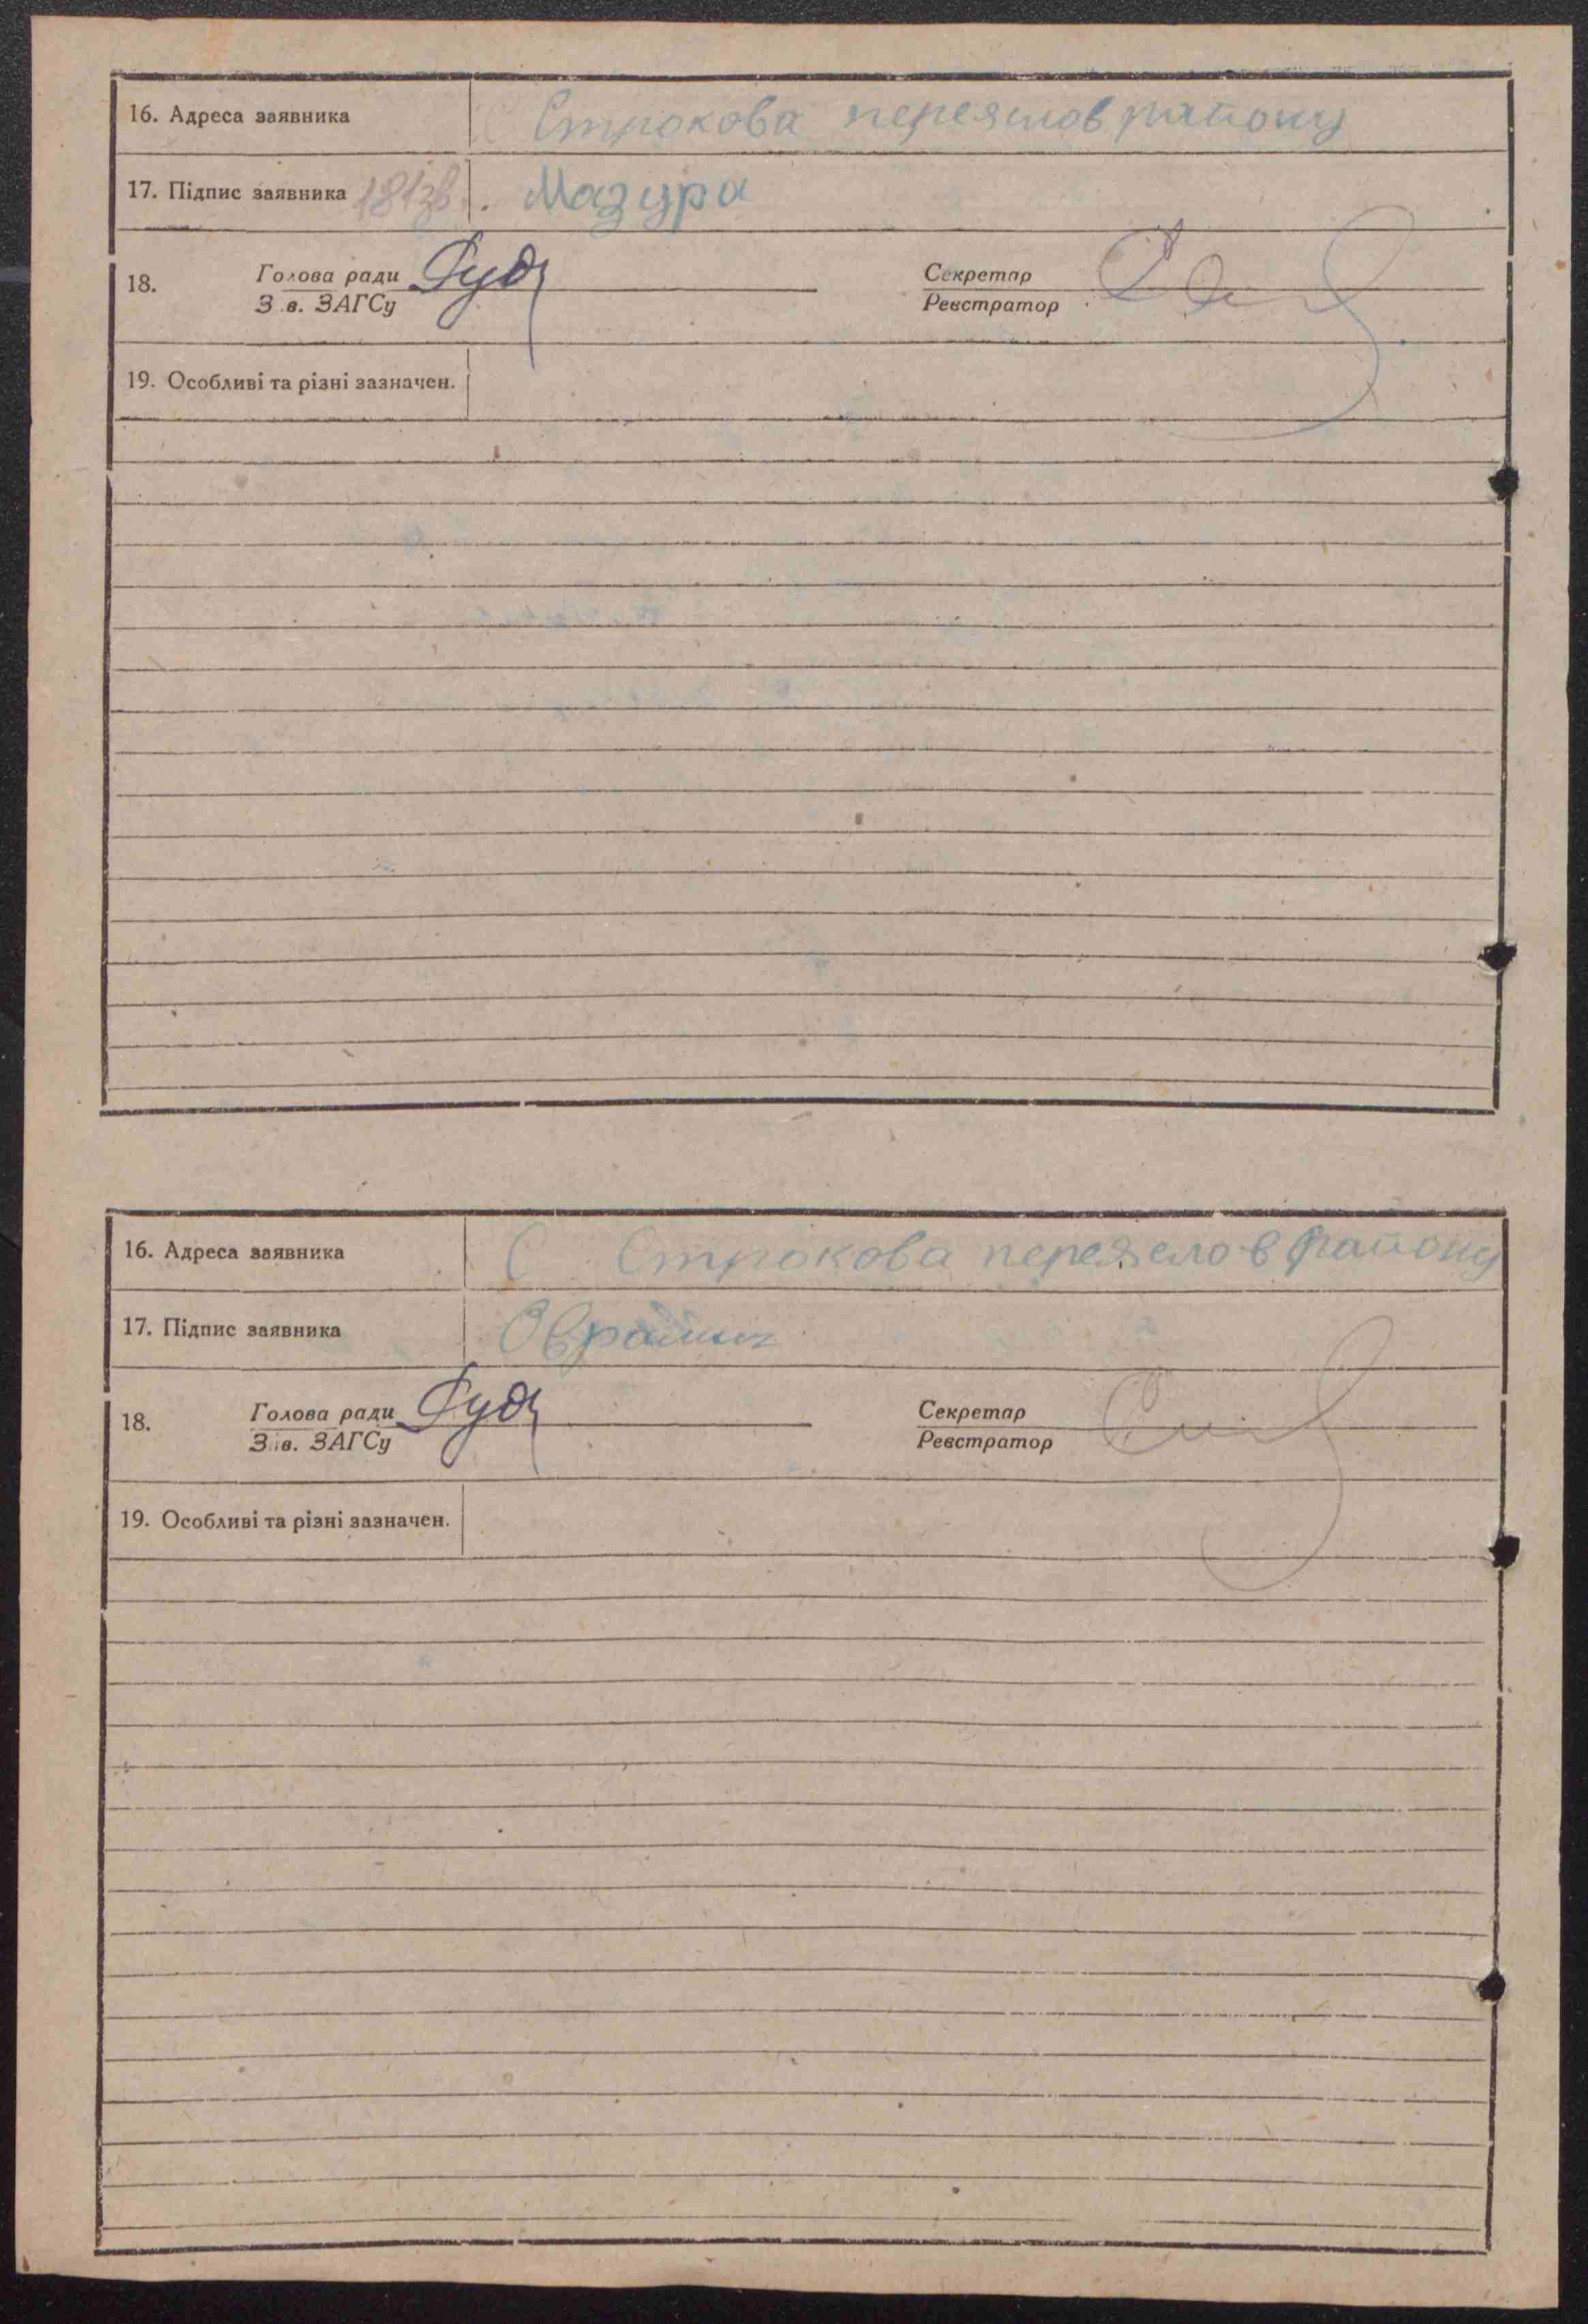 16. Адреса заявника С Строкова переяслов району
17. Підпис заявника 181зв. Мазура
18. Голова ради Секретар
Зав. ЗАГСу Реєстратор
19. Особливі та різні зазначен.
16. Адреса заявника С Строкова переяслов району
17. Підпис заявника
18. Голова ради Секретар
Зав. ЗАГСу Реєстратор
19. Особливі та різні зазначен.